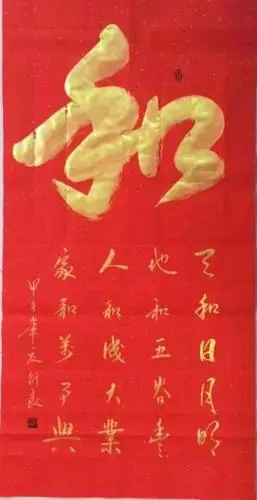 和
天和日月明
地和五谷豐
人和成大業
家和萬事興
甲午年